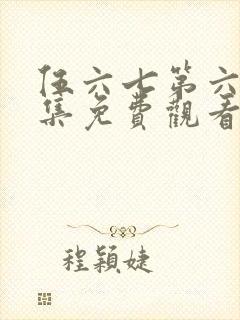 伍六七第六
集免費觀看
程穎婕